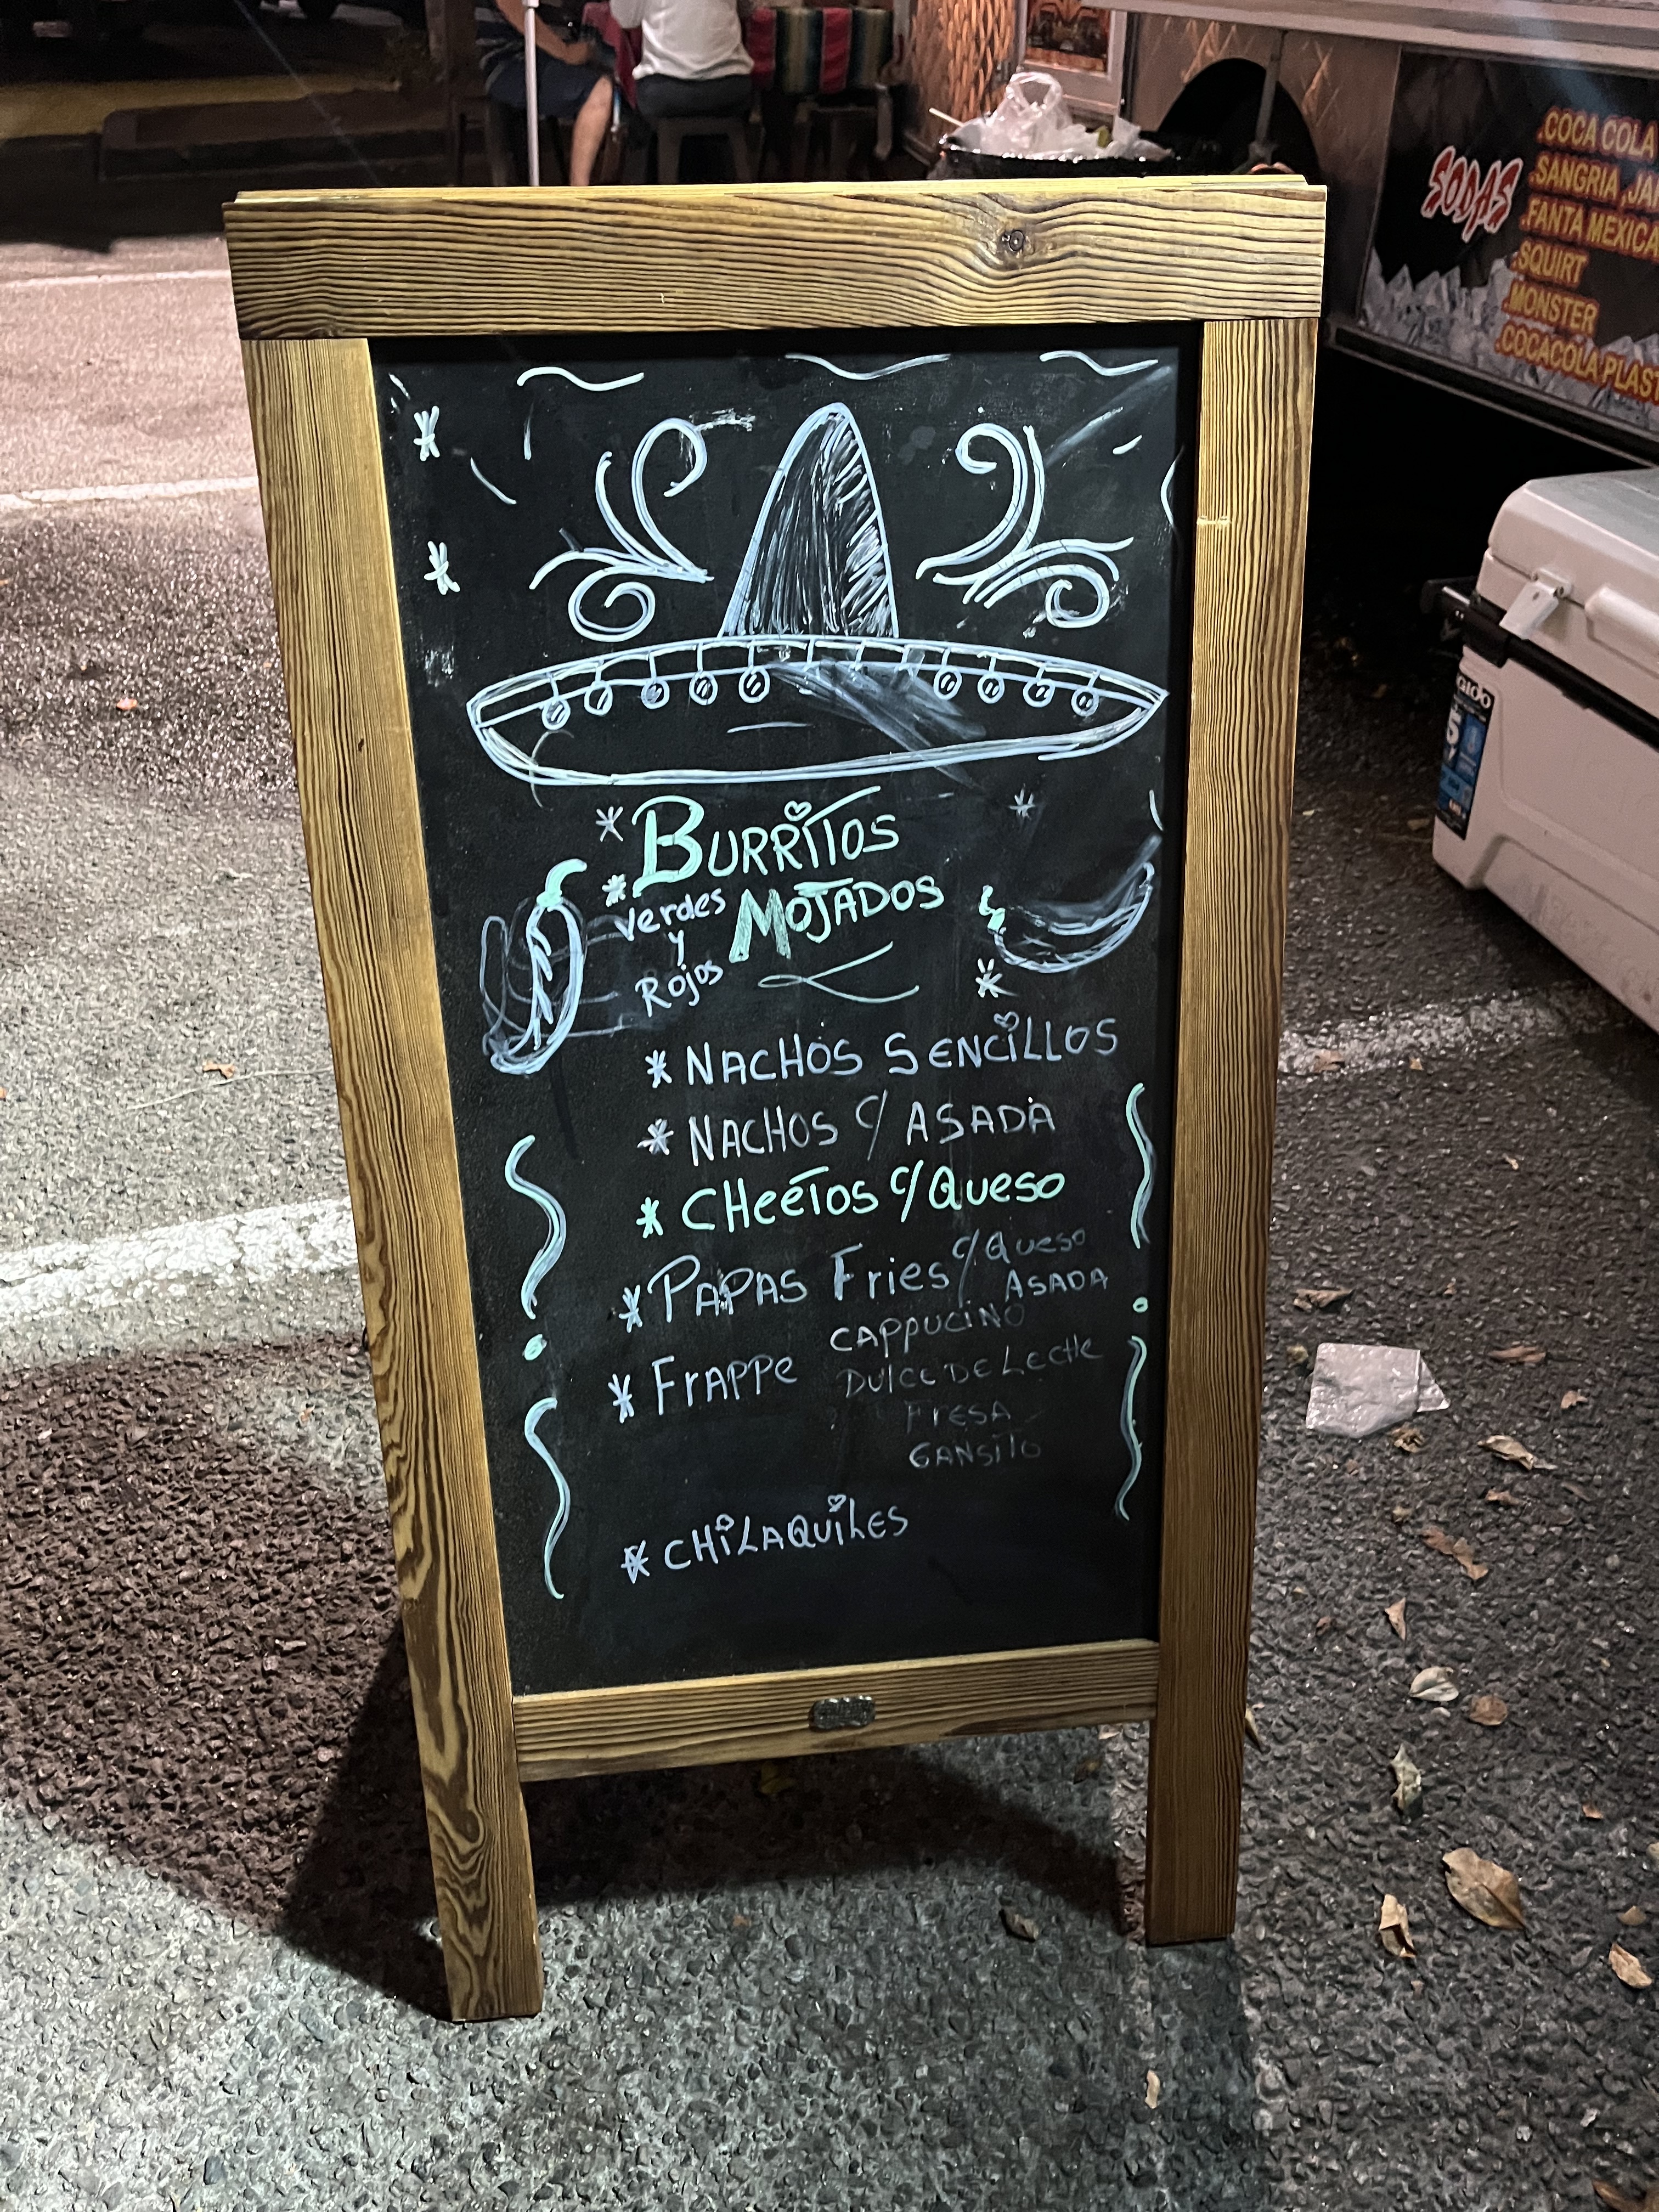 * BURRITOS
* verdes y Rojos MOJADOS
* NACHOS SENCILLOS
* NACHOS C/ ASADA
* CHeeTos C/Queso
* PAPAS Fries C/Queso
ASADA
* FrAPPe CAPPUCINO
DULCE DE LeCHe
FresA
GANSITO
* CHiLAQUiLES
SODAS
.COCA COLA
.SANGRIA ,JA
.FANTA MEXICA
.SQUIRT
.MONSTER
.COCACOLA PLAST
IGLOO